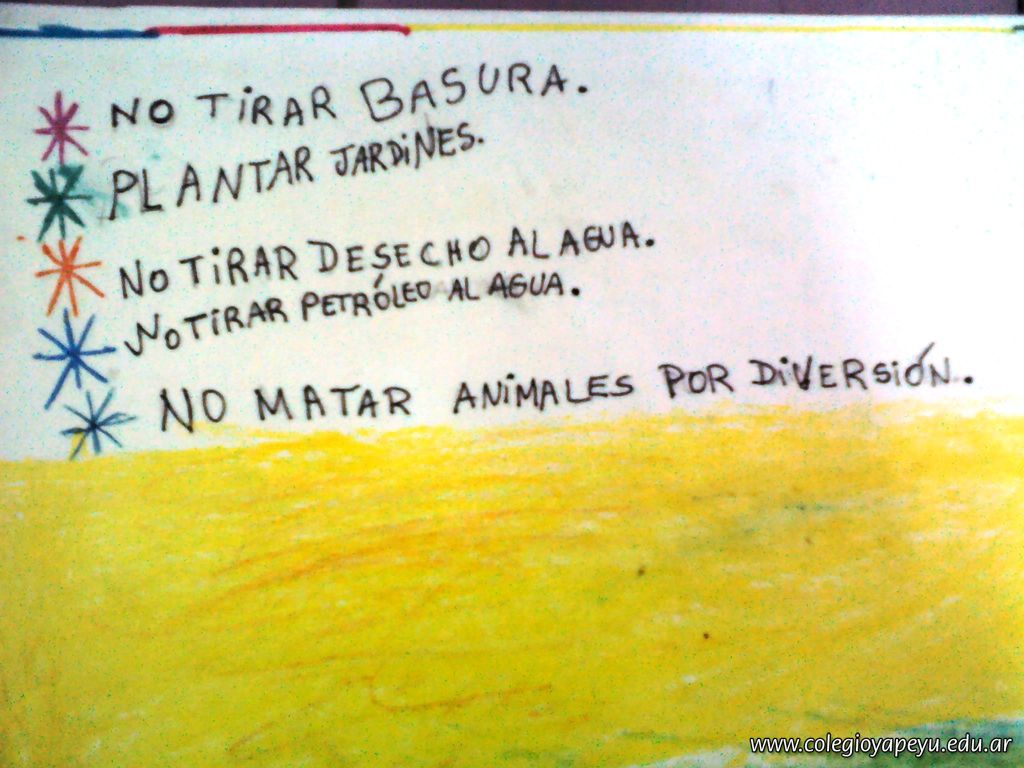 NO TIRAR BASURA.
PLANTAR JARDINES.
NO TIRAR DESECHO AL AGUA.
NO TIRAR PETRÓLEO AL AGUA.
NO MATAR ANIMALES POR DIVERSIÓN.
www.colegioyapeyu.edu.ar